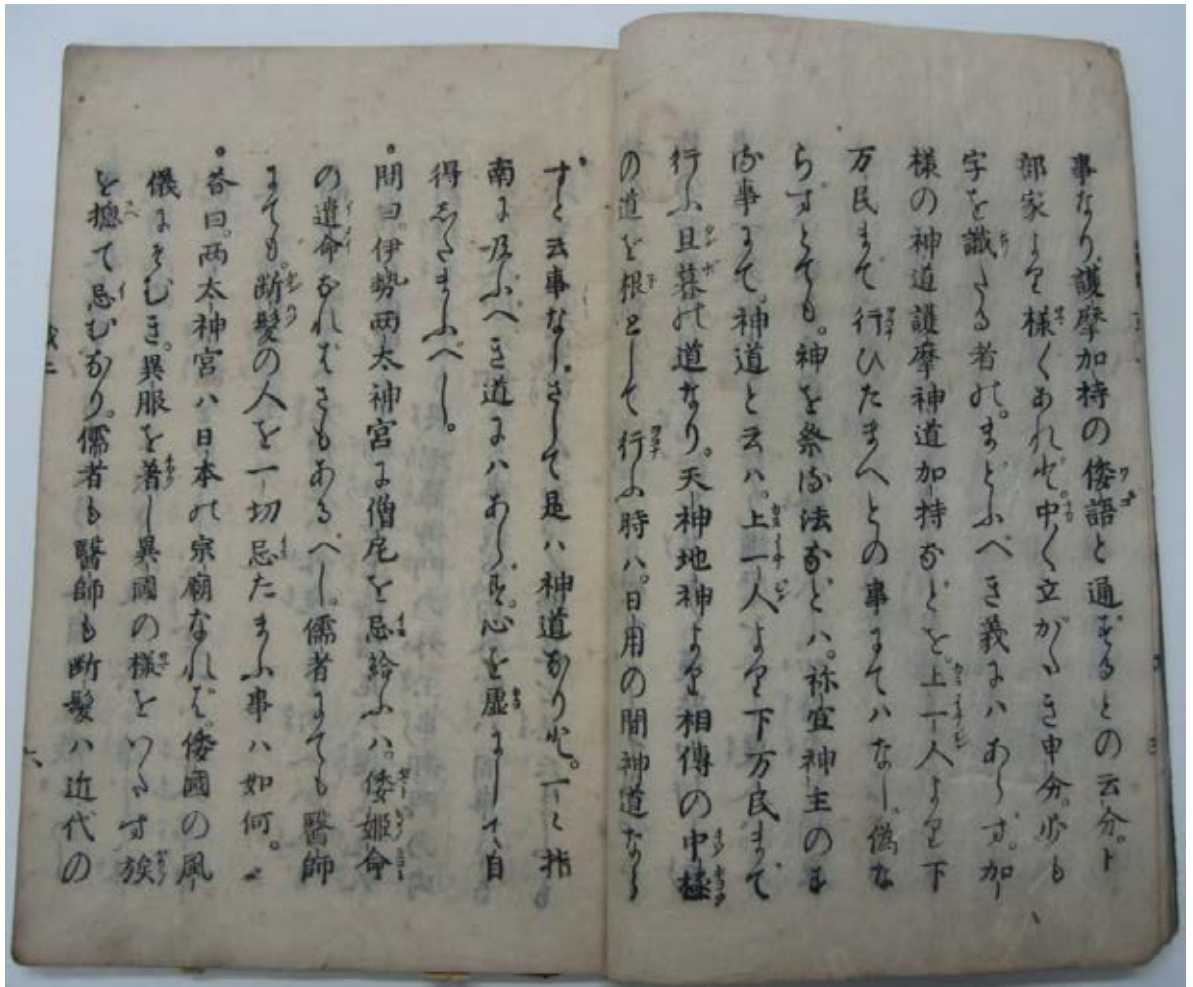 事なり。護摩加持の倭語と通ずるとの云分。ト
部家より様〻あれど。中〻立がたき申分。少も
字を識たる者の。まどふべき義にハあらず。加
様の神道護摩神道加持などを。上一人より下
万民まで行ひたまへとの事にてハなし。偽な
らずとても。神を祭る法などハ。祢宜神主のす
る事にて。神道と云ハ。上一人より下万民まで
行ふ旦暮の道なり。天神地神より相傳の中極
の道を根として行ふ時ハ。日用の間神道なら
ずと云事なし。さして是ハ神道なりと。一〻指
南に及ぶべき道にハあらず。心を虚にして自
得したまふべし。
問曰。伊勢両太神宮に僧尼を忌給ふハ。倭姫命
の遺命なれバさもあるべし。儒者にても醫師
にても。断髪の人を一切忌たまふ事ハ如何。
答曰。両太神宮ハ日本の宗廟なれバ。倭國の風
儀にそむき。異服を著し異國の様をいたす族
を揔て忌むなり。儒者も醫師も断髪ハ近代の